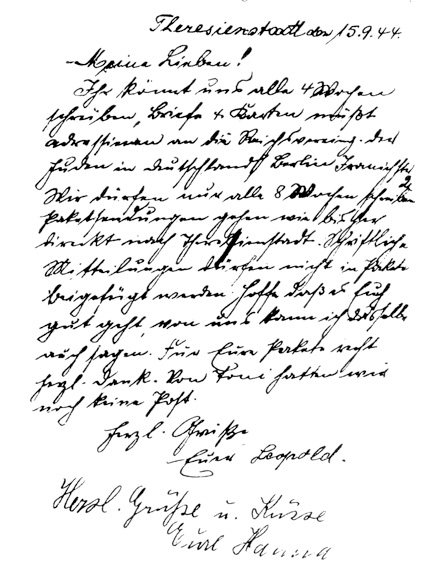 Theresienstadt den 15.9.44.
Meine Lieben!
Ihr könnt uns alle 4 Wochen
schreiben, Briefe & Karten müßt
adressieren an die Reichsvereing. der
Juden in Deutschland, Berlin
Wir dürfen nur alle 8 Wochen schreiben
Paketsendungen gehen wie bisher
direkt nach Theresienstadt. Schriftliche
Mitteilungen dürfen nicht in Pakete
beigefügt werden. Hoffe daß es Euch
gut geht, von uns kann ich dasselbe
auch sagen. Für Eure Pakete recht
herzl. Dank. Von Toni hatten wir
noch keine Post.
Herzl. Grüße
Euer Leopold.
Herzl. Grüße u. Küsse
Eure Hanna